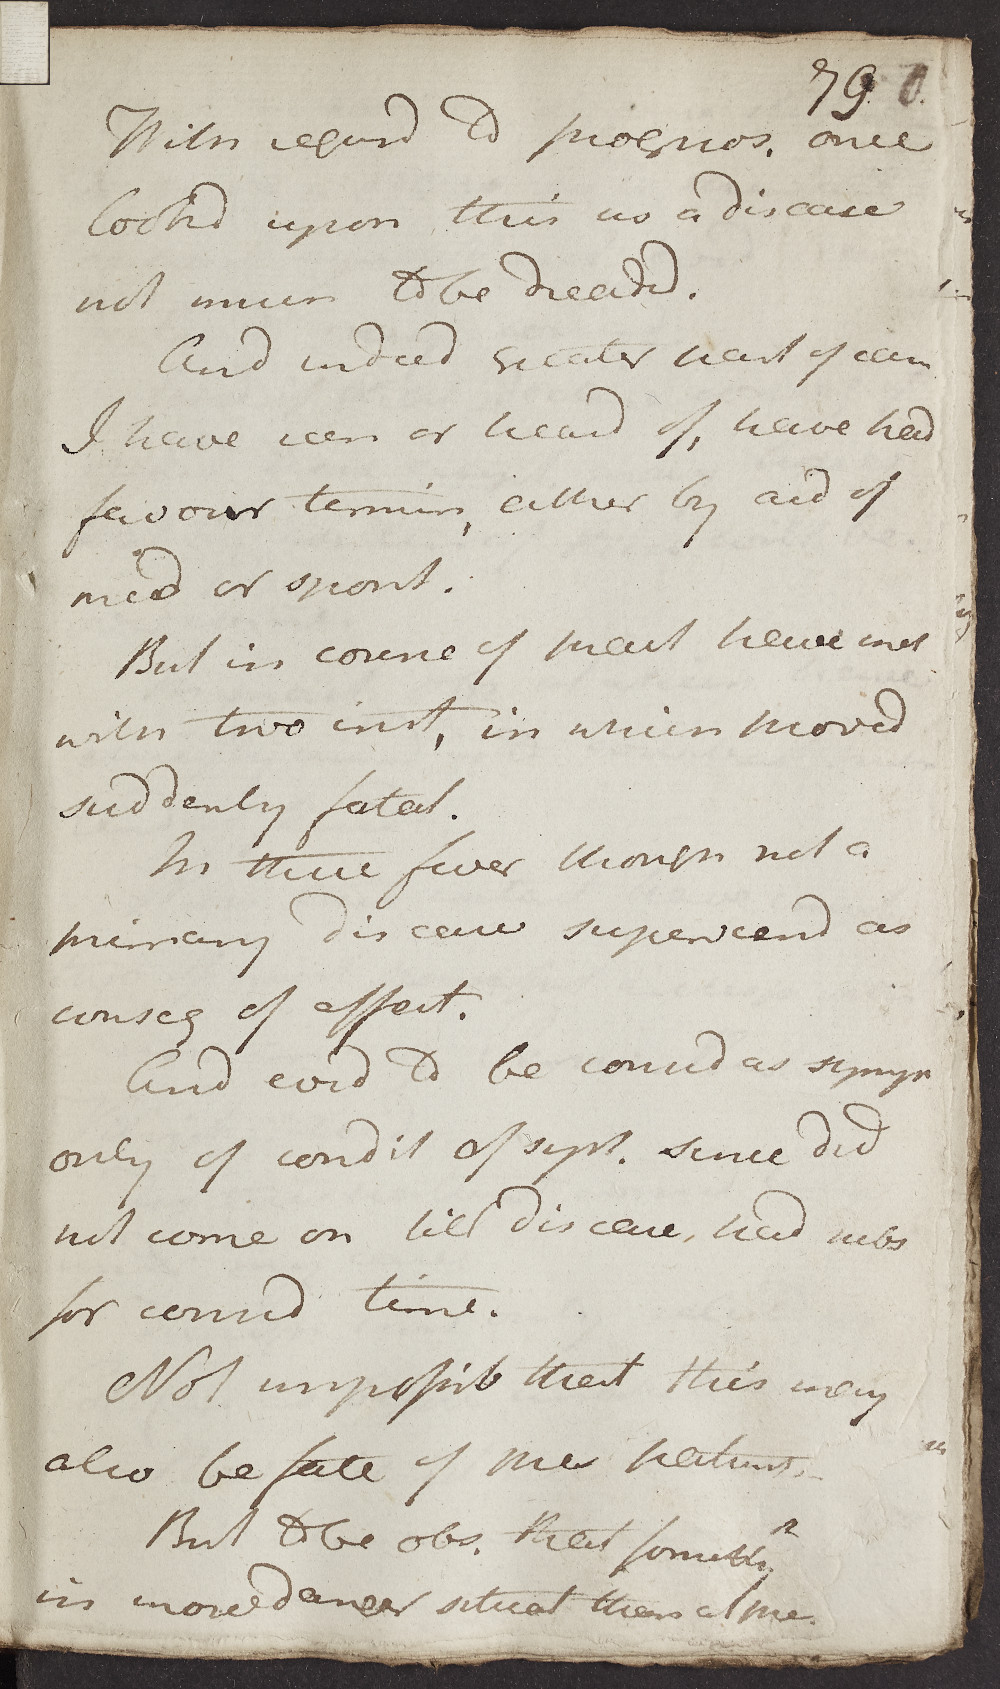 79
With regard to prognos. once
look'd upon this as a disease
not much to be dreaded.
And indeed greater part of cases
I have seen or heard of, have had
favour termin, either by aid of
med or spont.
But in course of pract have met
with two inst, in which proved
suddenly fatal.
In these fever though not a
primary disease superveend as
conseq of affect.
And evid to be consid as symp
only of condit of syst. since did
not come on till disease, had subs
for consid time.
Not impossib that this may
also be fate of pres patient.
But to be obs. that somethg
in more danger situat than at pre.